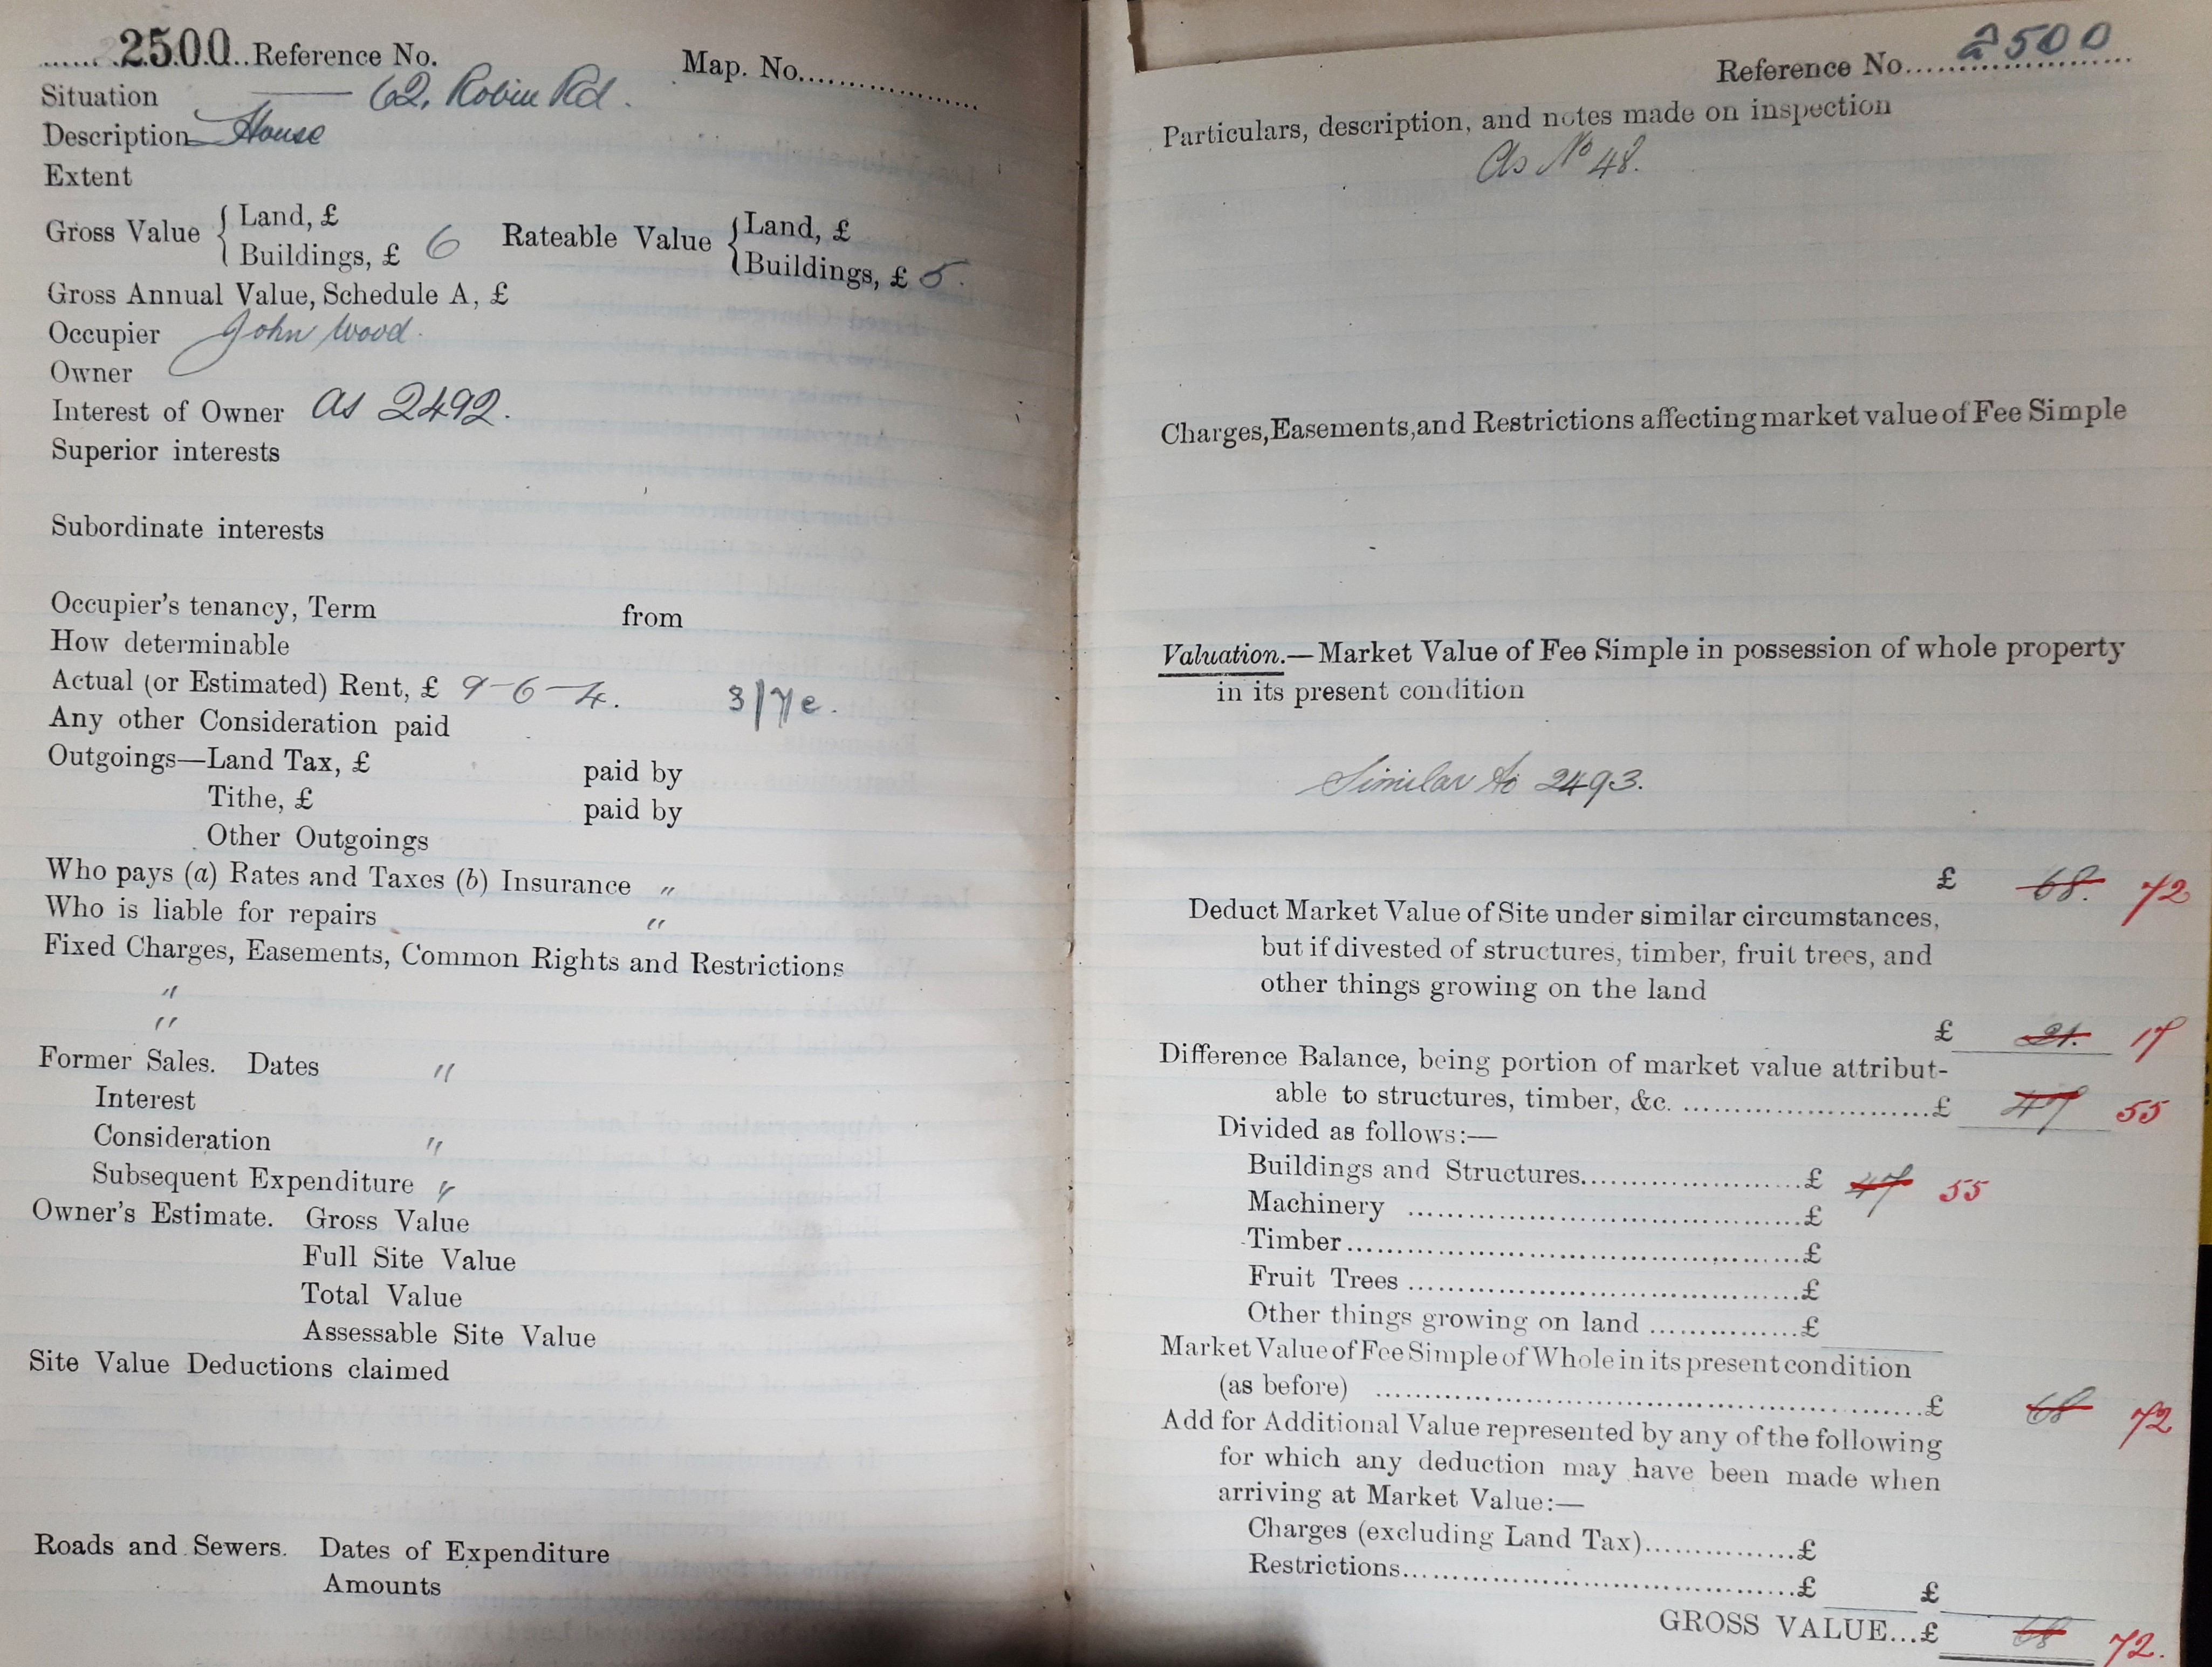 ...... 2500.. Reference No.    Map. No..................
Situation —— 62, Robin Rd.
Description House
Extent
Gross Value { Land, £    Rateable Value { Land, £
Buildings, £ 6    Buildings, £ 5.
Gross Annual Value, Schedule A, £
Occupier John Wood.
Owner
Interest of Owner as 2492.
Superior interests
Subordinate interests
Occupier's tenancy, Term    from
How determinable
Actual (or Estimated) Rent, £ 9-6-4.    3/7 e.
Any other Consideration paid
Outgoings—Land Tax, £    paid by
Tithe, £    paid by
Other Outgoings
Who pays (a) Rates and Taxes (b) Insurance "
Who is liable for repairs "
Fixed Charges, Easements, Common Rights and Restrictions
"
"
Former Sales. Dates "
Interest
Consideration "
Subsequent Expenditure "
Owner's Estimate. Gross Value
Full Site Value
Total Value
Assessable Site Value
Site Value Deductions claimed
Roads and Sewers. Dates of Expenditure
Amounts
Reference No. 2500
Particulars, description, and notes made on inspection
As No 48.
Charges, Easements, and Restrictions affecting market value of Fee Simple
Valuation.—Market Value of Fee Simple in possession of whole property
in its present condition
Similar to 2493.
£ 68. 72
Deduct Market Value of Site under similar circumstances,
but if divested of structures, timber, fruit trees, and
other things growing on the land
£ 21. 17
Difference Balance, being portion of market value attribut-
able to structures, timber, &c. ........................£ 47 55
Divided as follows:—
Buildings and Structures........................£ 47 55
Machinery ........................£
Timber........................£
Fruit Trees ........................£
Other things growing on land ...............£
Market Value of Fee Simple of Whole in its present condition
(as before) ........................£ 68 72
Add for Additional Value represented by any of the following
for which any deduction may have been made when
arriving at Market Value:—
Charges (excluding Land Tax)...............£
Restrictions........................£    £
GROSS VALUE...£ 68 72.